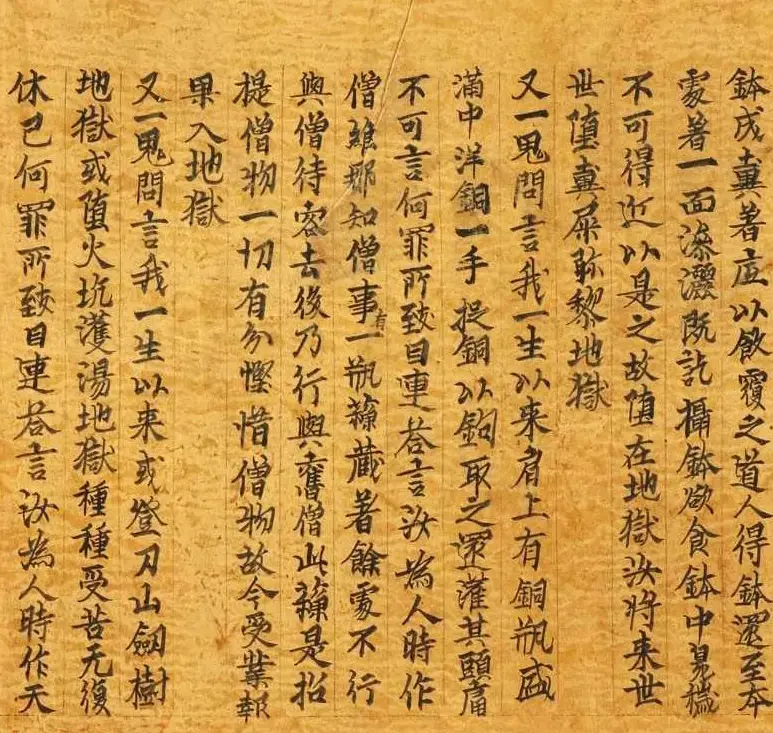 鉢戍糞著底以飯覆之道人得鉢還至本
處著一面澡灑既訖攝鉢欲食鉢中見穢
不可得近以是之故堕在地獄汝將来世
世堕糞屎弥黎地獄
又一鬼問言我一生以来肩上有銅瓶盛
滿中洋銅一手捉銅以鉤取之還灌其頭痛
不可言何罪所致目連荅言汝為人時作
僧維那知僧事有一瓶蘓藏著餘處不行
與僧待客去後乃行與舊僧此蘓是招
提僧物一切有分慳惜僧物故今受業報
果入地獄
又一鬼問言我一生以来或登刀山劔樹
地獄或堕火坑鑊湯地獄種種受苦无復
休已何罪所致目連荅言汝為人時作天